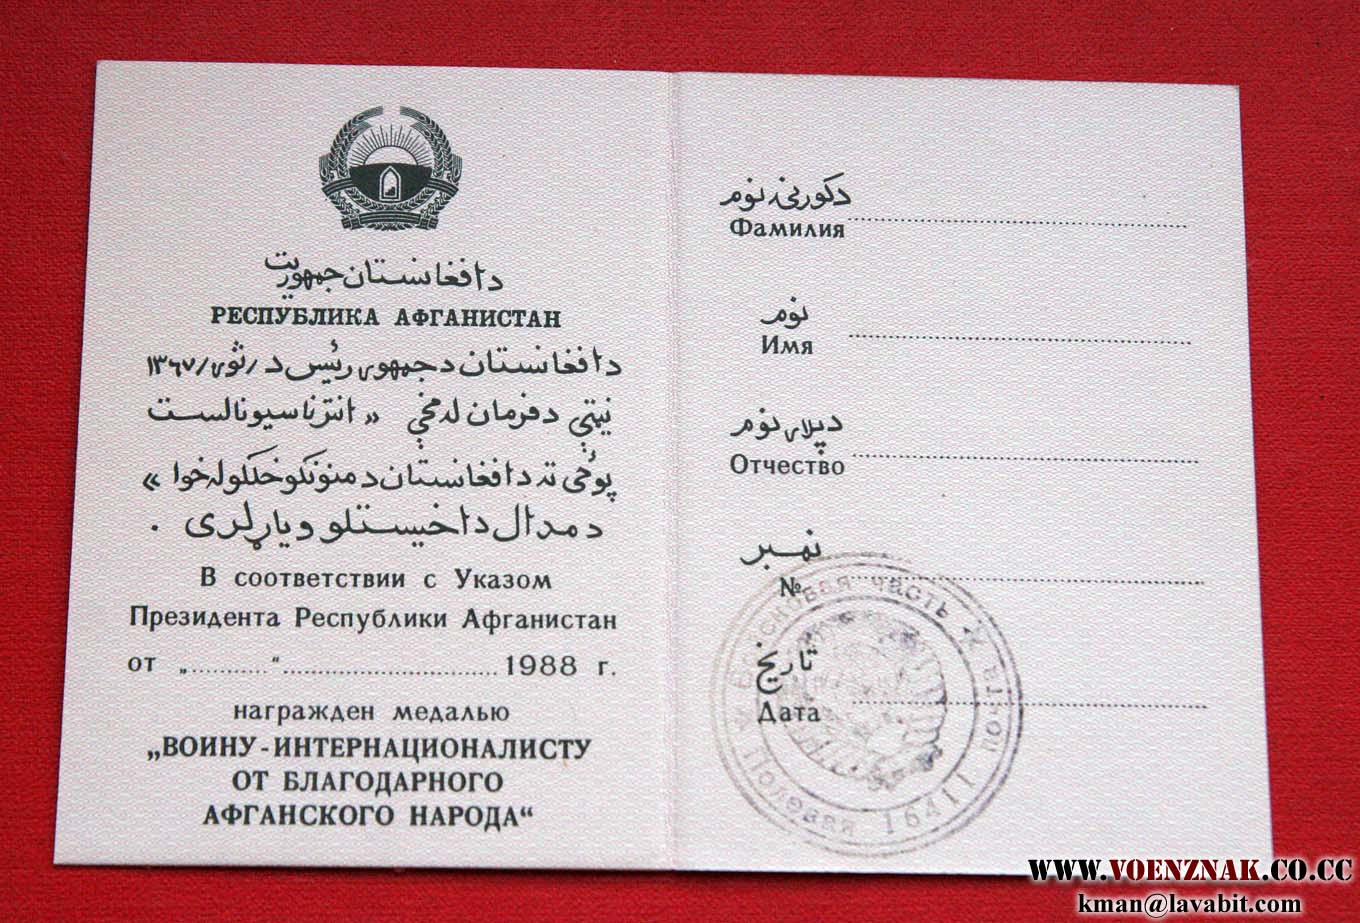 د افغانستان جمهوريت
РЕСПУБЛИКА АФГАНИСТАН
د افغانستان د جمهوري رئيس د / ثور / ١٣٦٧
نېټې د فرمان له مخې « انترناسيونالست
پوځي ته د افغانستان د منونکو خلکو له خوا »
د مدال د اخيستلو وياړ لری .
В соответствии с Указом
Президента Республики Афганистан
от „..........“..............................1988 г.
награжден медалью
„ВОИНУ-ИНТЕРНАЦИОНАЛИСТУ
ОТ БЛАГОДАРНОГО
АФГАНСКОГО НАРОДА“
د کورنۍ نوم
Фамилия
نوم
Имя
د پلار نوم
Отчество
نمبر
№
تاريخ
Дата
Войсковая часть
Полевая почта
16411
WWW.VOENZNAK.CO.CC
kman@lavabit.com